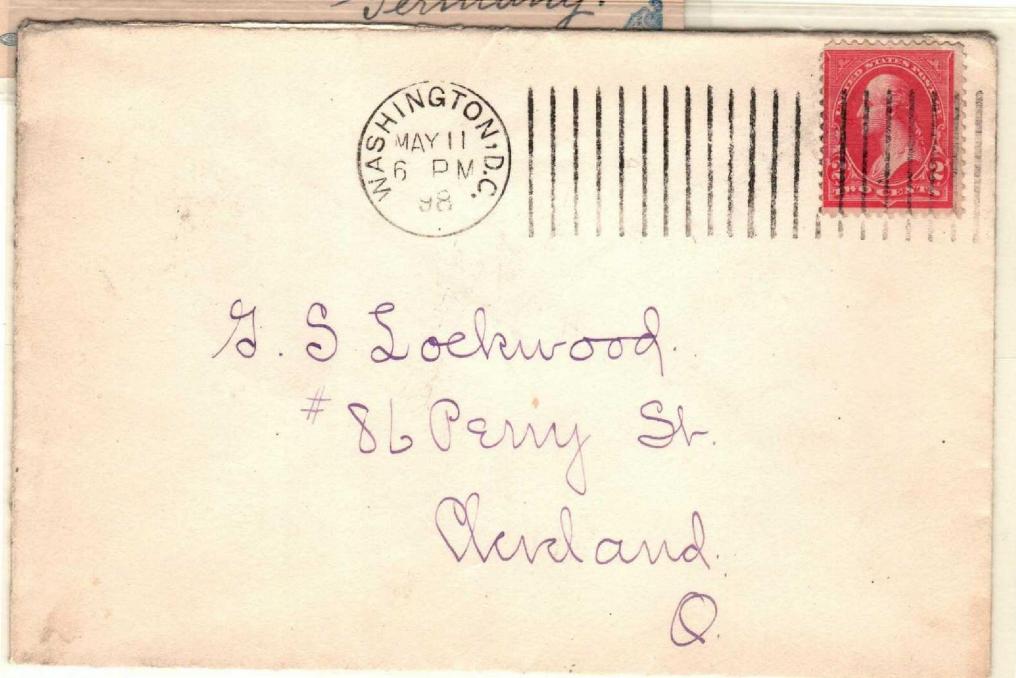 Germany.
WASHINGTON, D.C.
MAY 11
6 PM
98
UNITED STATES POSTAGE
2 2
TWO CENTS
G. S Lockwood.
# 86 Perry St.
Cleveland.
O.